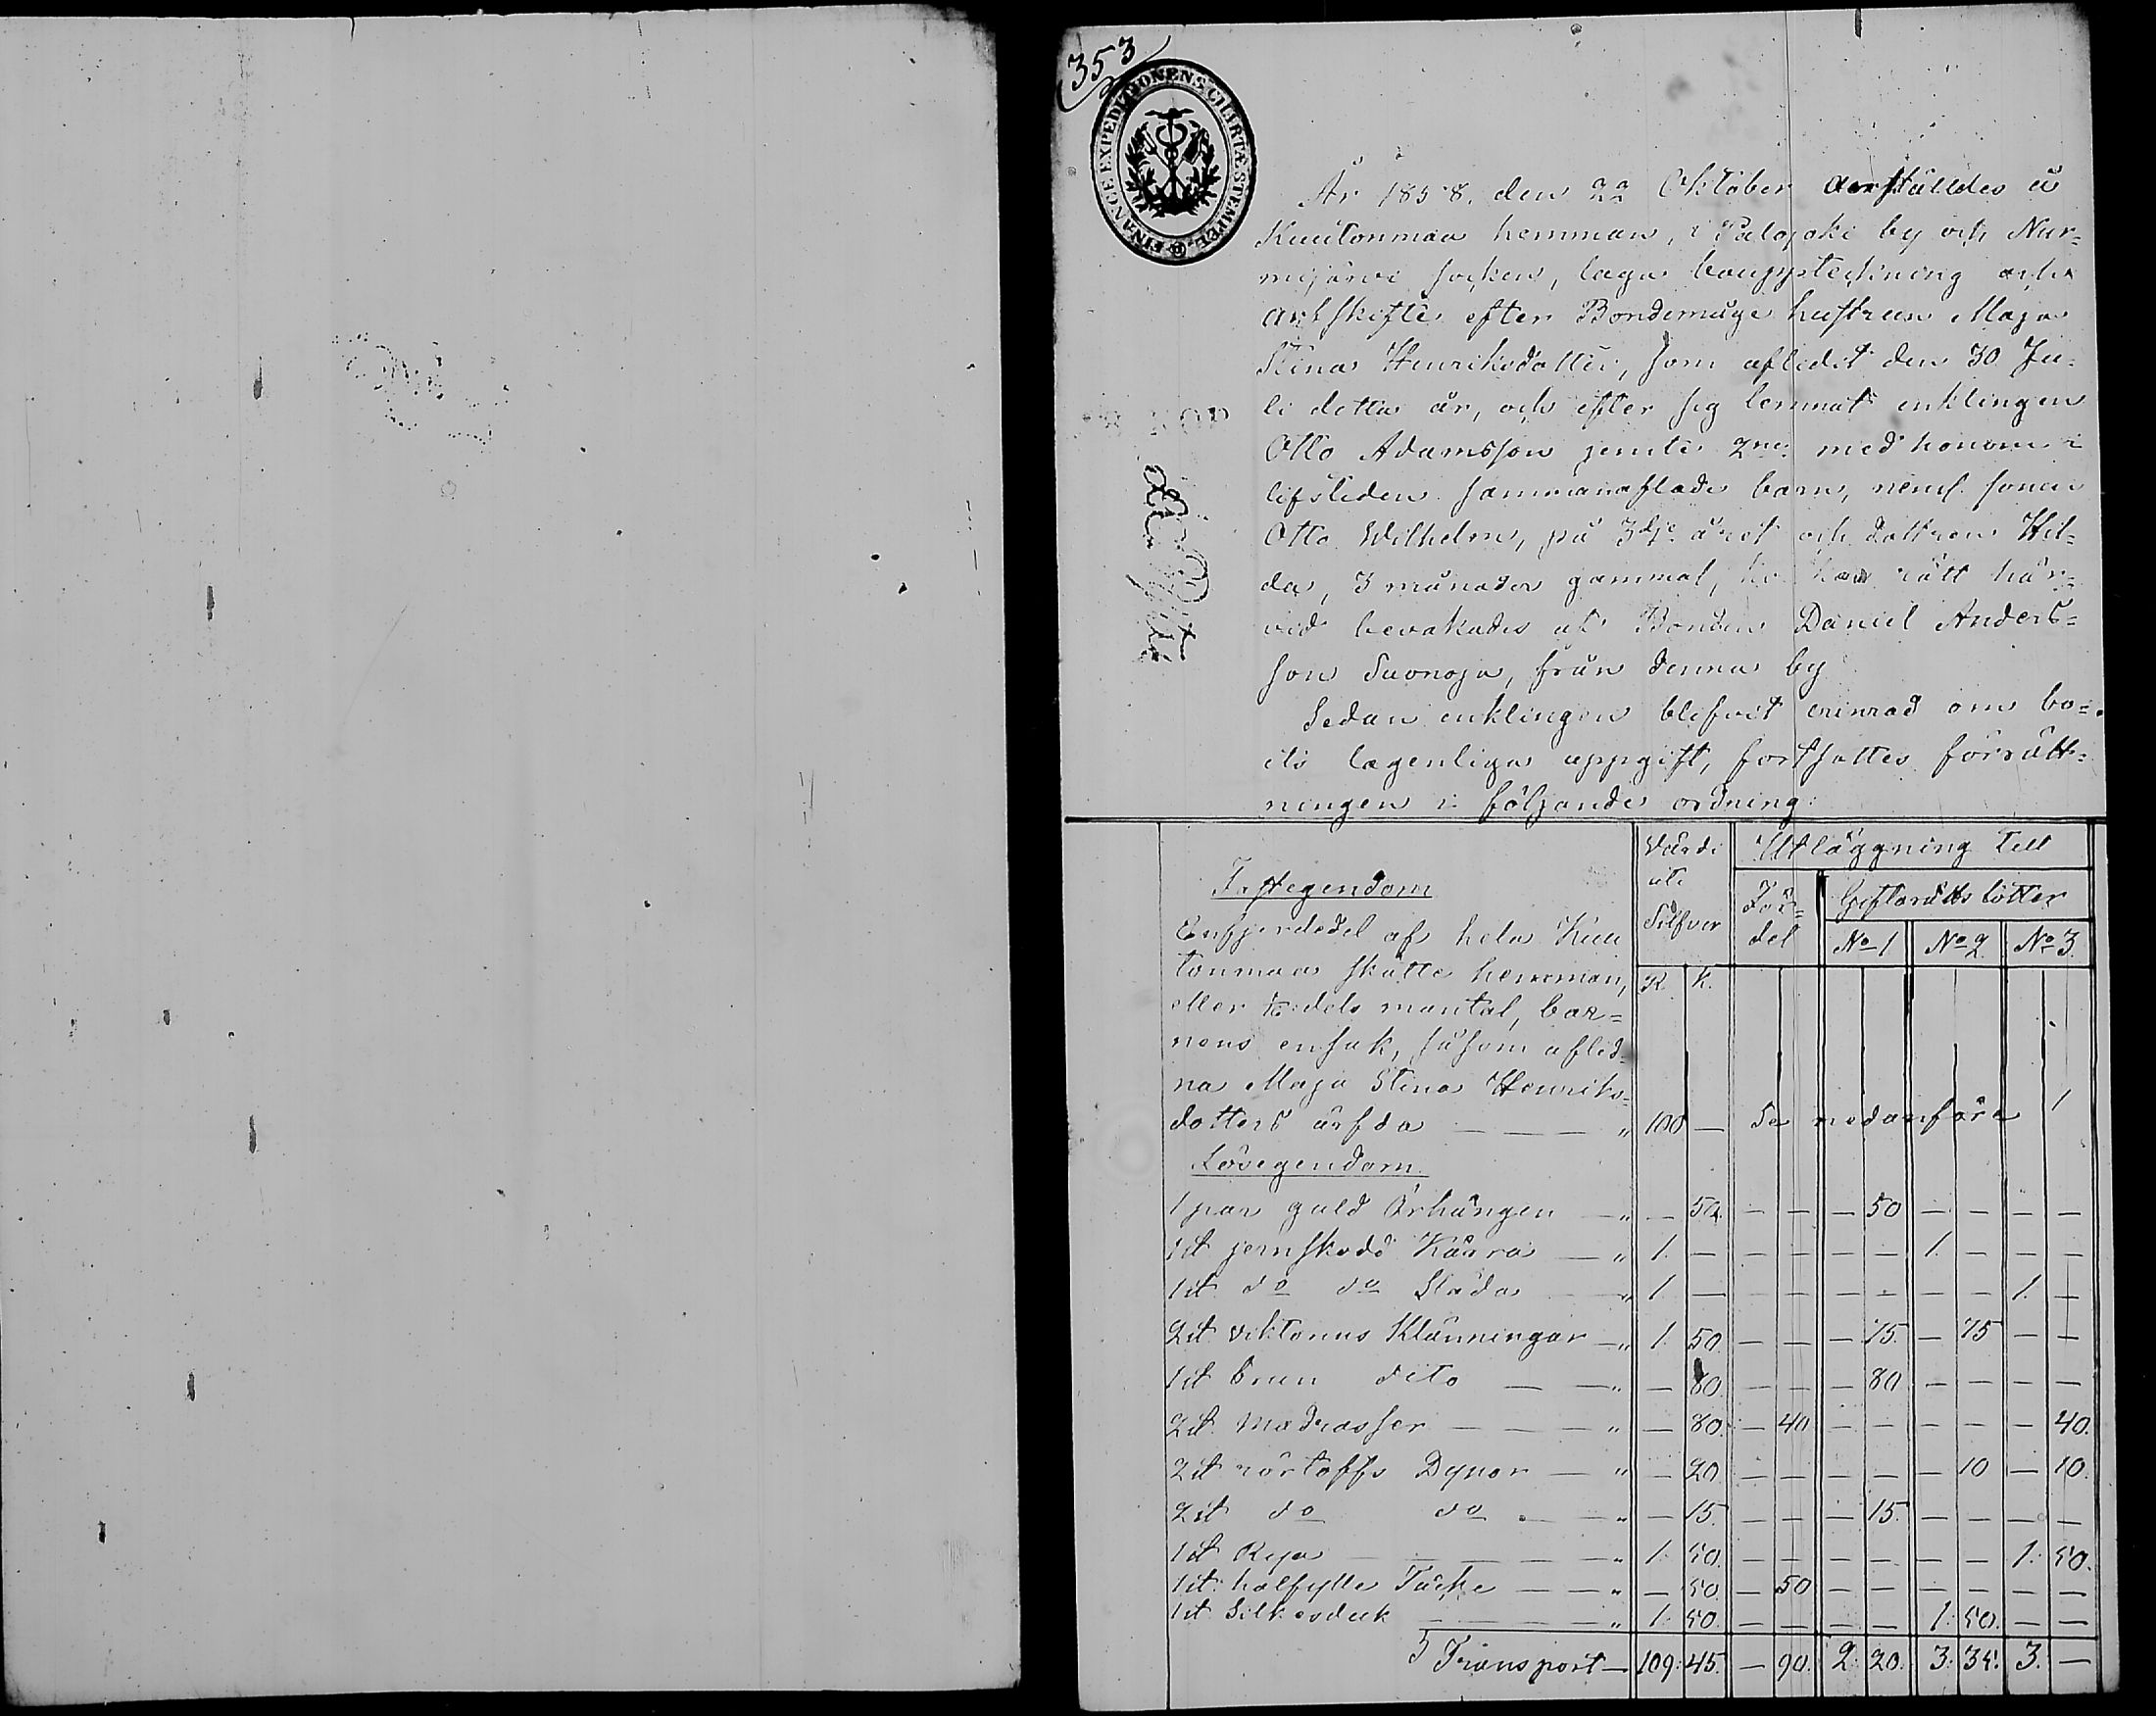 353
FINANCE EXPEDITIONENS CHARTÆ STEMPEL
År 1858, den 22 Oktober anställdes å
Kuutonmaa hemman, i Palojoki by och Nur=
mijärvi socken, laga bouppteckning och
arfskifte efter Bondemåge hustrun Maja
Stina Henriksdotter, som aflidit den 30 Ju=
li detta år, och efter sig lemnat enklingen
Otto Adamsson jemte 2ne med honom i
lifstiden sammanaflade barn, neml. sonen
Otto Wilhelm, på 3dje året och dottren Hil=
da, 3 månader gammal, rätt här=
vid bevakades af Bonden Daniel Anders=
son Suonoja, från denna by
Sedan enklingen blifvit erinrad om bo=
ets lagenliga uppgift, fortsattes förrätt=
ningen i följande ordning:
Värde uti Silfver | Utläggning till
Fastegendom | För= del | Giftorätts lotter
R. k. | No 1 | No 2 | No 3
Enfjerdedel af hela Kuu
tonmaa skatte hemman,
eller dels mantal, bar=
nens ensak, såsom aflid=
na Maja Stina Henriks=
dotters ärfda — — — " 100 — Se nedanföre 1
Lösegendom
1 par guld Örhängen — " — 50. — — — 50 — — — —
1 st jernskodd Kärra — " 1. — — — — — 1. — — —
1 st do do Släda — " 1 — — — — — — — 1. —
2 st viktorius Klänningar — " 1. 50. — — — 75. — 75 — —
1 st brun dito — — " — 80. — — — 80 — — — —
2 st. Madrasser — — — " — 80. — 40 — — — — — 40.
2 st Dynor — " — 20 — — — — — 10 — 10.
2 st do do — — " — 15. — — — 15. — — — —
1 st Rya — — — — — " 1. 50. — — — — — — 1. 50.
1 st. halfylle Täcke — — " — 50. — 50 — — — — — —
1 st Silkesduk — — — — " 1. 50. — — — — 1. 50. — —
Transport — 109. 45. — 90. 2. 20. 3. 35. 3. —